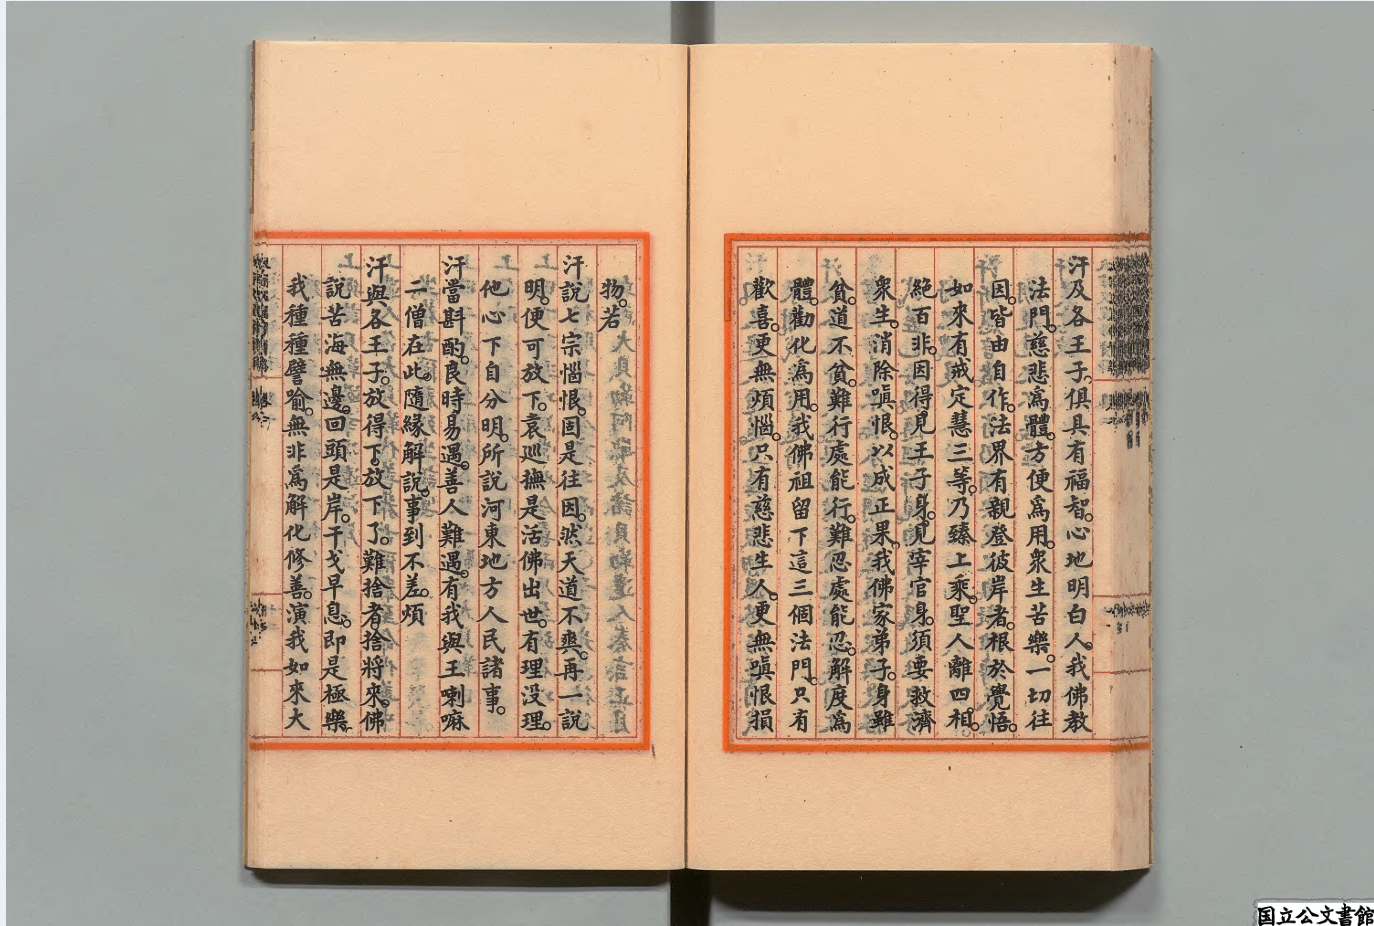 汗及各王子。俱具有福智。心地明白人。我佛教
法門。慈悲為體。方便為用。衆生苦樂。一切往
因。皆由自作。法界有親登彼岸者。根於覺悟。
如來有戒定慧三等。乃臻上乘。聖人離四相。
絕百非。因得見王子身。見宰官身。須要救濟
衆生。消除嗔恨。以成正果。我佛家弟子。身雖
貧。道不貧。難行處能行。難忍處能忍。解度為
體。勸化為用。我佛祖留下這三個法門。只有
歡喜。更無煩惱。只有慈悲生人。更無嗔恨損
物。若
汗說七宗惱恨。固是往因。然天道不爽。再一說
明。便可放下。袁巡撫是活佛出世。有理没理。
他心下自分明。所說河東地方人民諸事。
汗當斟酌。良時易遇。善人難遇。有我與王喇嘛
二僧在此。隨緣解說。事到不差。煩
汗與各王子。放得下放下了。難捨者捨將來。佛
說苦海無邊。回頭是岸。干戈早息。即是極樂。
我種種譬喻。無非為解化修善。演我如來大
国立公文書館